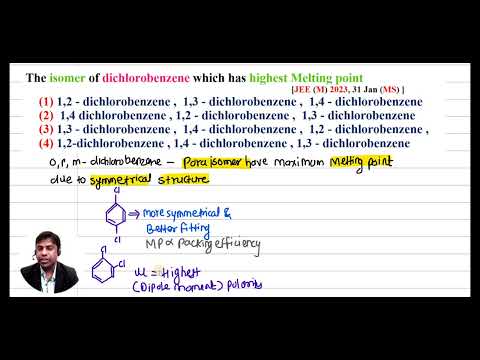 The isomer of dichlorobenzene which has highest Melting point
[JEE (M) 2023, 31 Jan (MS) ]
(1) 1,2 - dichlorobenzene , 1,3 - dichlorobenzene , 1,4 - dichlorobenzene
(2) 1,4 dichlorobenzene , 1,2 - dichlorobenzene , 1,3 - dichlorobenzene
(3) 1,3 - dichlorobenzene , 1,4 - dichlorobenzene , 1,2 - dichlorobenzene ,
(4) 1,2-dichlorobenzene , 1,4 - dichlorobenzene , 1,3 - dichlorobenzene
O, P, m - dichlorobenzene - Para isomer have maximum Melting point
due to symmetrical structure
Cl
⇒ more symmetrical &
Better fitting
Cl
MP ∝ Packing efficiency
Cl
Cl
μ = Highest
(Dipole moment) Polarity